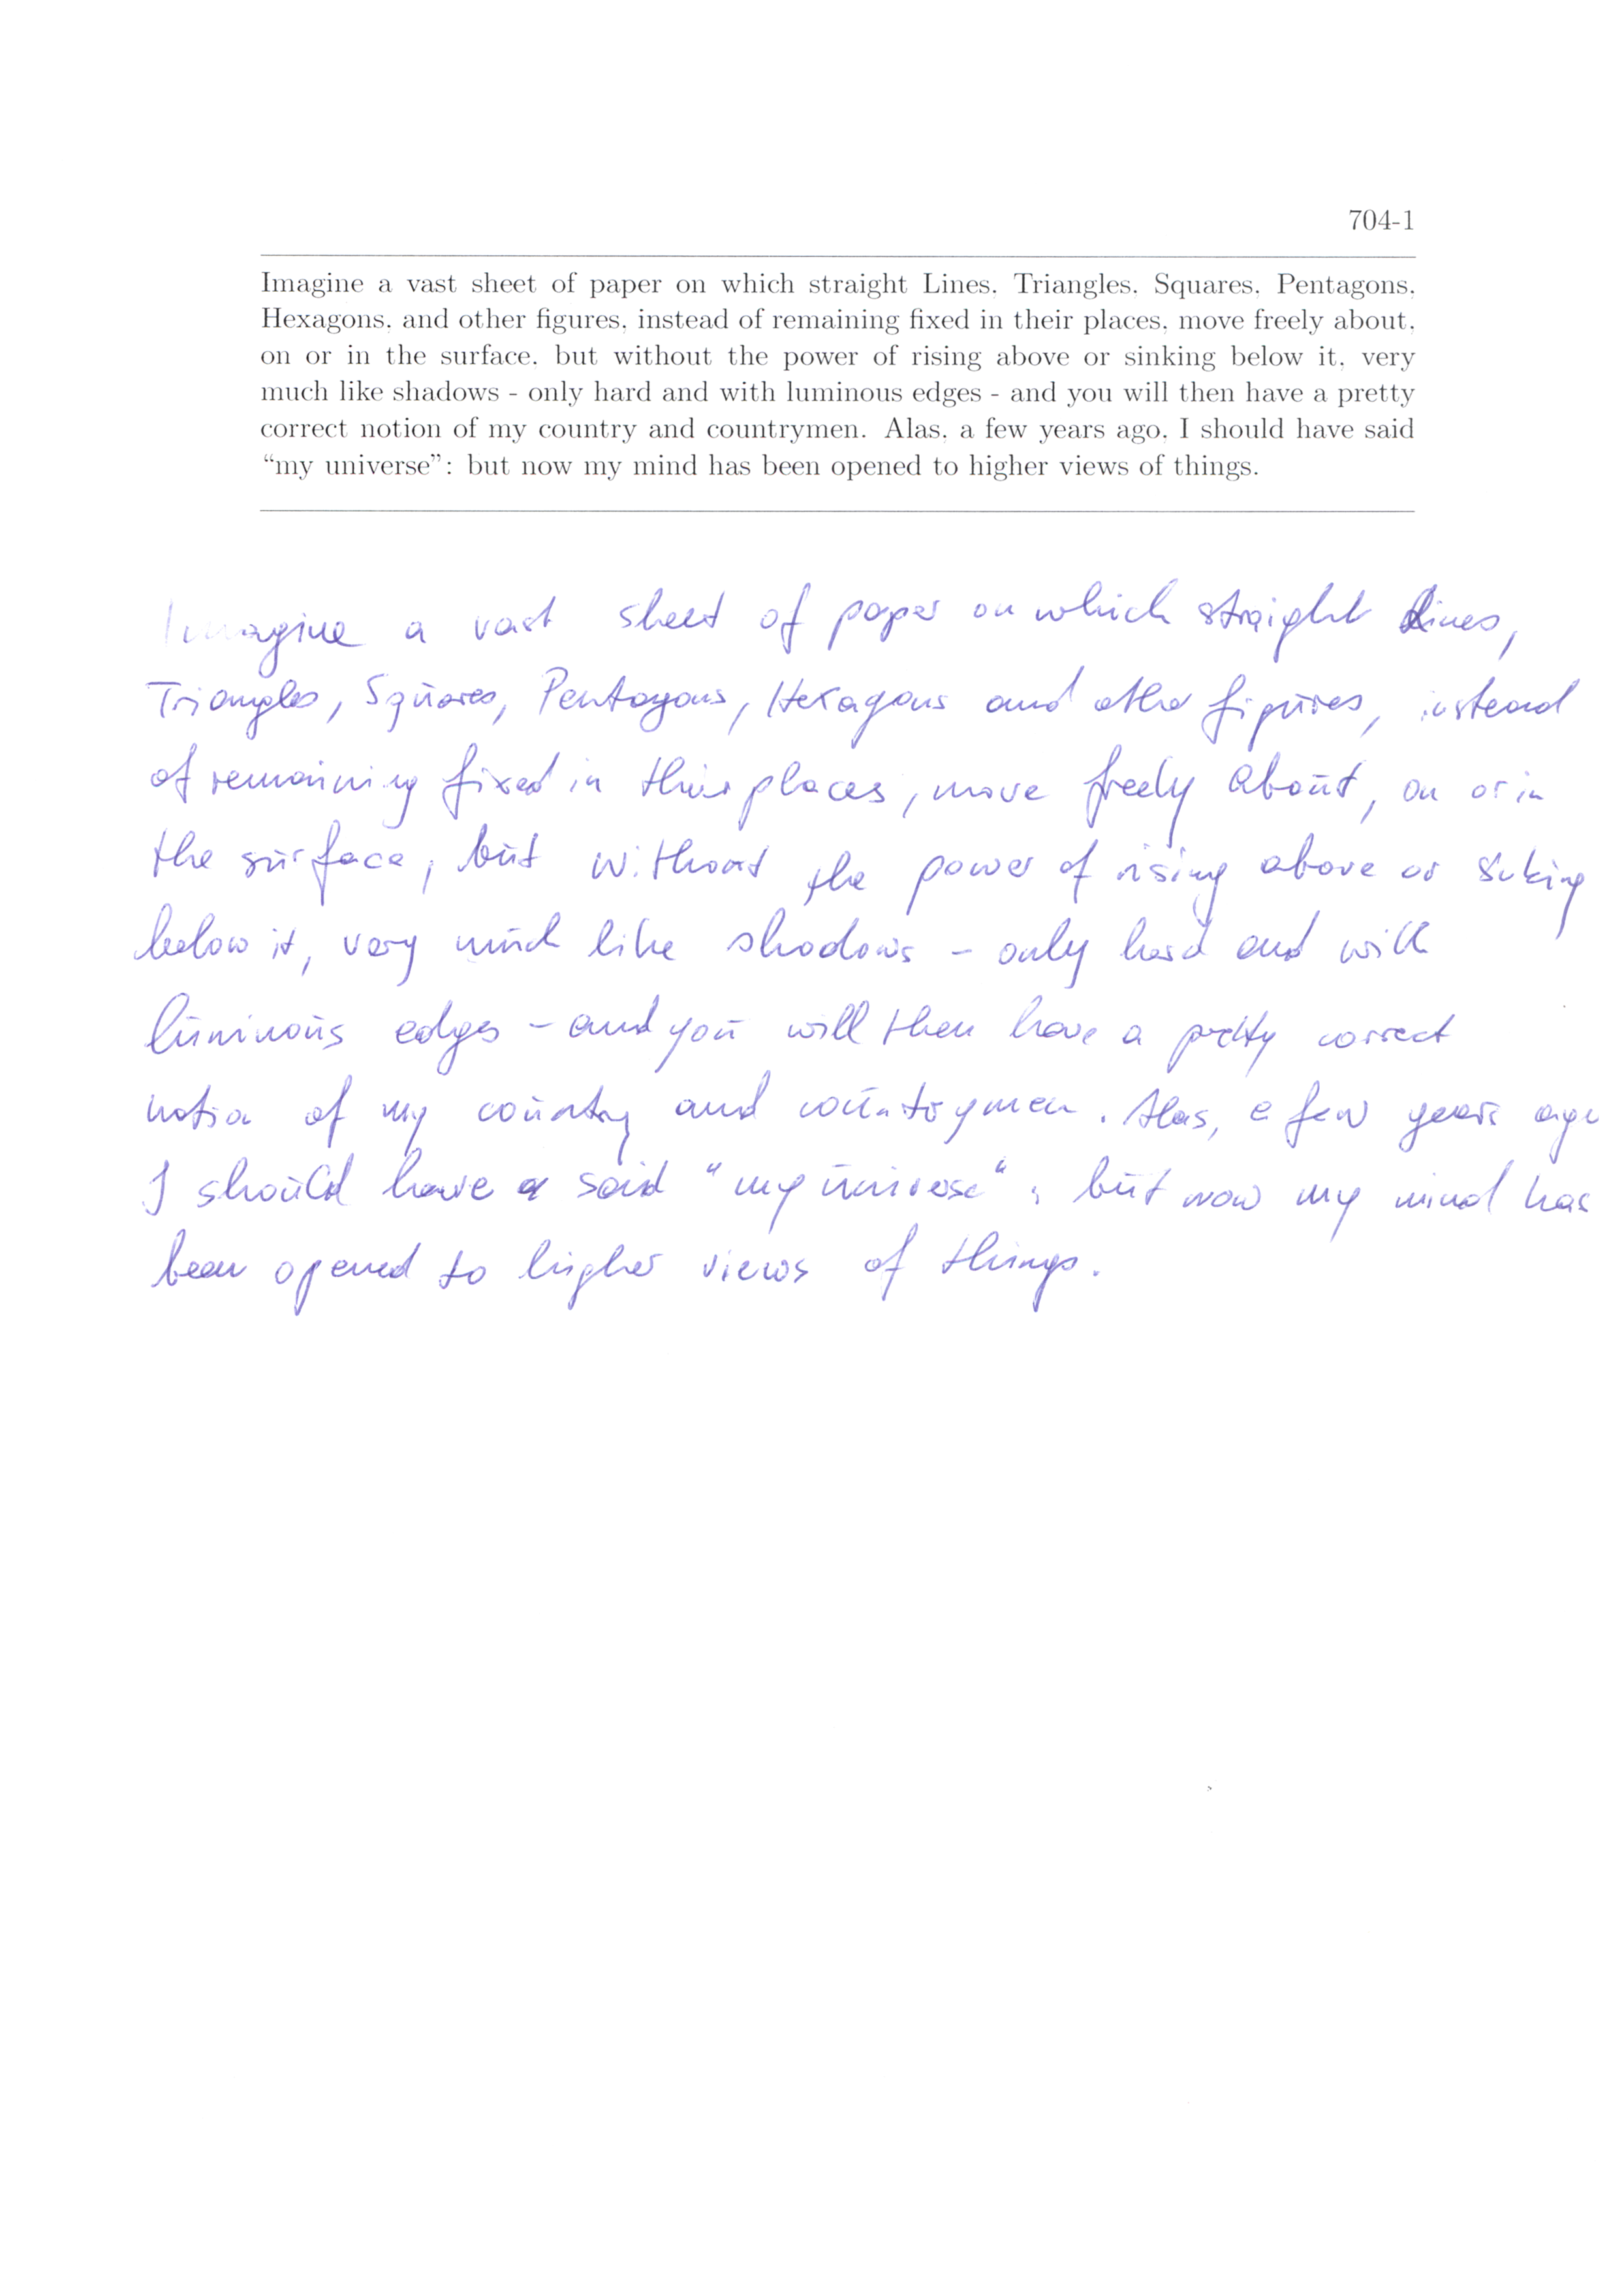 704-1
Imagine a vast sheet of paper on which straight Lines, Triangles, Squares, Pentagons,
Hexagons, and other figures, instead of remaining fixed in their places, move freely about,
on or in the surface, but without the power of rising above or sinking below it, very
much like shadows - only hard and with luminous edges - and you will then have a pretty
correct notion of my country and countrymen. Alas, a few years ago, I should have said
“my universe”: but now my mind has been opened to higher views of things.
Imagine a vast sheet of paper on which straight Lines,
Triangles, Squares, Pentagons, Hexagons and other figures, instead
of remaining fixed in their places, move freely about, on or in
the surface, but without the power of rising above or sinking
below it, very much like shadows - only hard and with
luminous edges - and you will then have a pretty correct
notion of my country and countrymen. Alas, a few years ago
I should have a said "my universe": but now my mind has
been opened to higher views of things.